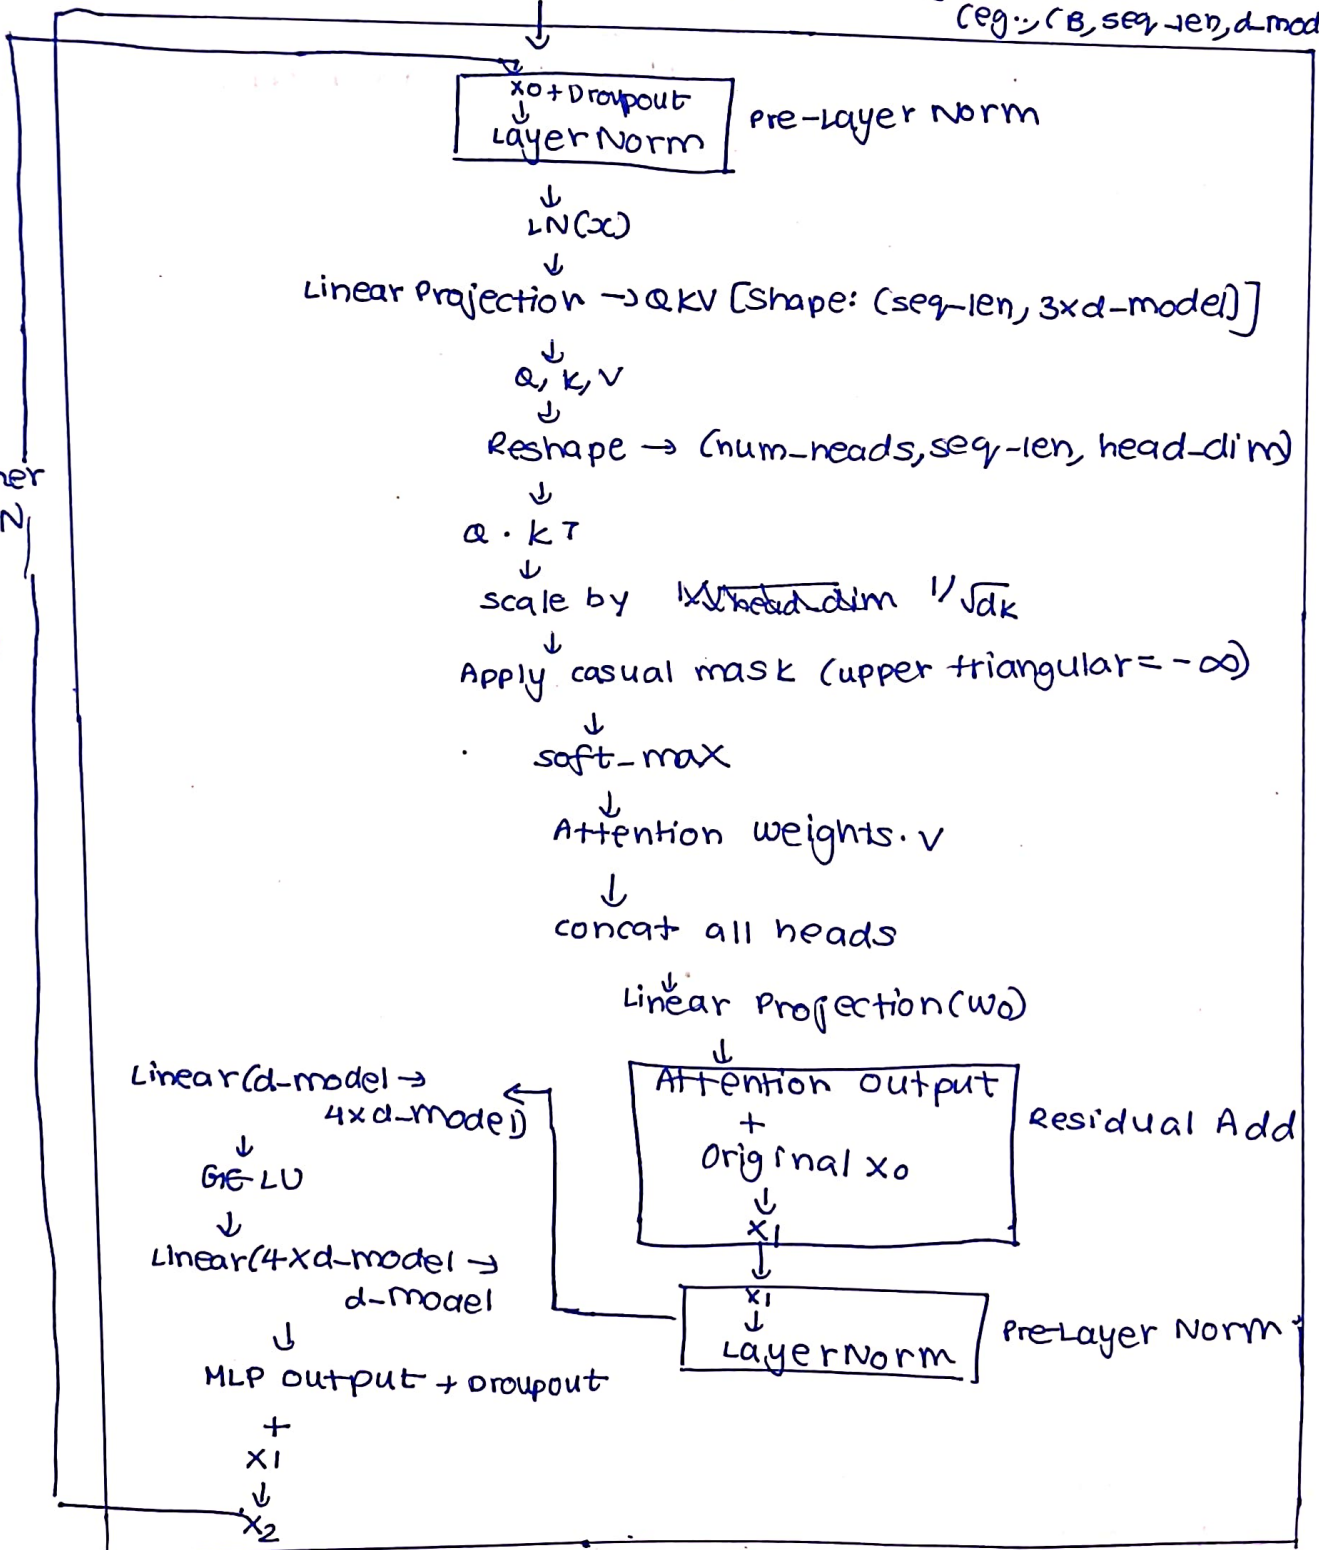 (eg., (B, seq-len, d-mod
x0+Droupout
LayerNorm
Pre-Layer Norm
LN(x)
Linear Projection → QKV [Shape: (seq-len, 3xd-model)]
Q, K, V
Reshape → (num_heads, seq-len, head_dim)
ner
N
Q . KT
scale by 1/√dk
Apply casual mask (upper triangular = -∞)
soft_max
Attention weights. V
concat all heads
Linear Projection (Wo)
Attention output
+
Original x0
x1
Residual Add
x1
LayerNorm
Pre-Layer Norm
Linear (d-model →
4xd-model)
GELU
Linear (4xd-model →
d-model
MLP output + Droupout
+
x1
x2